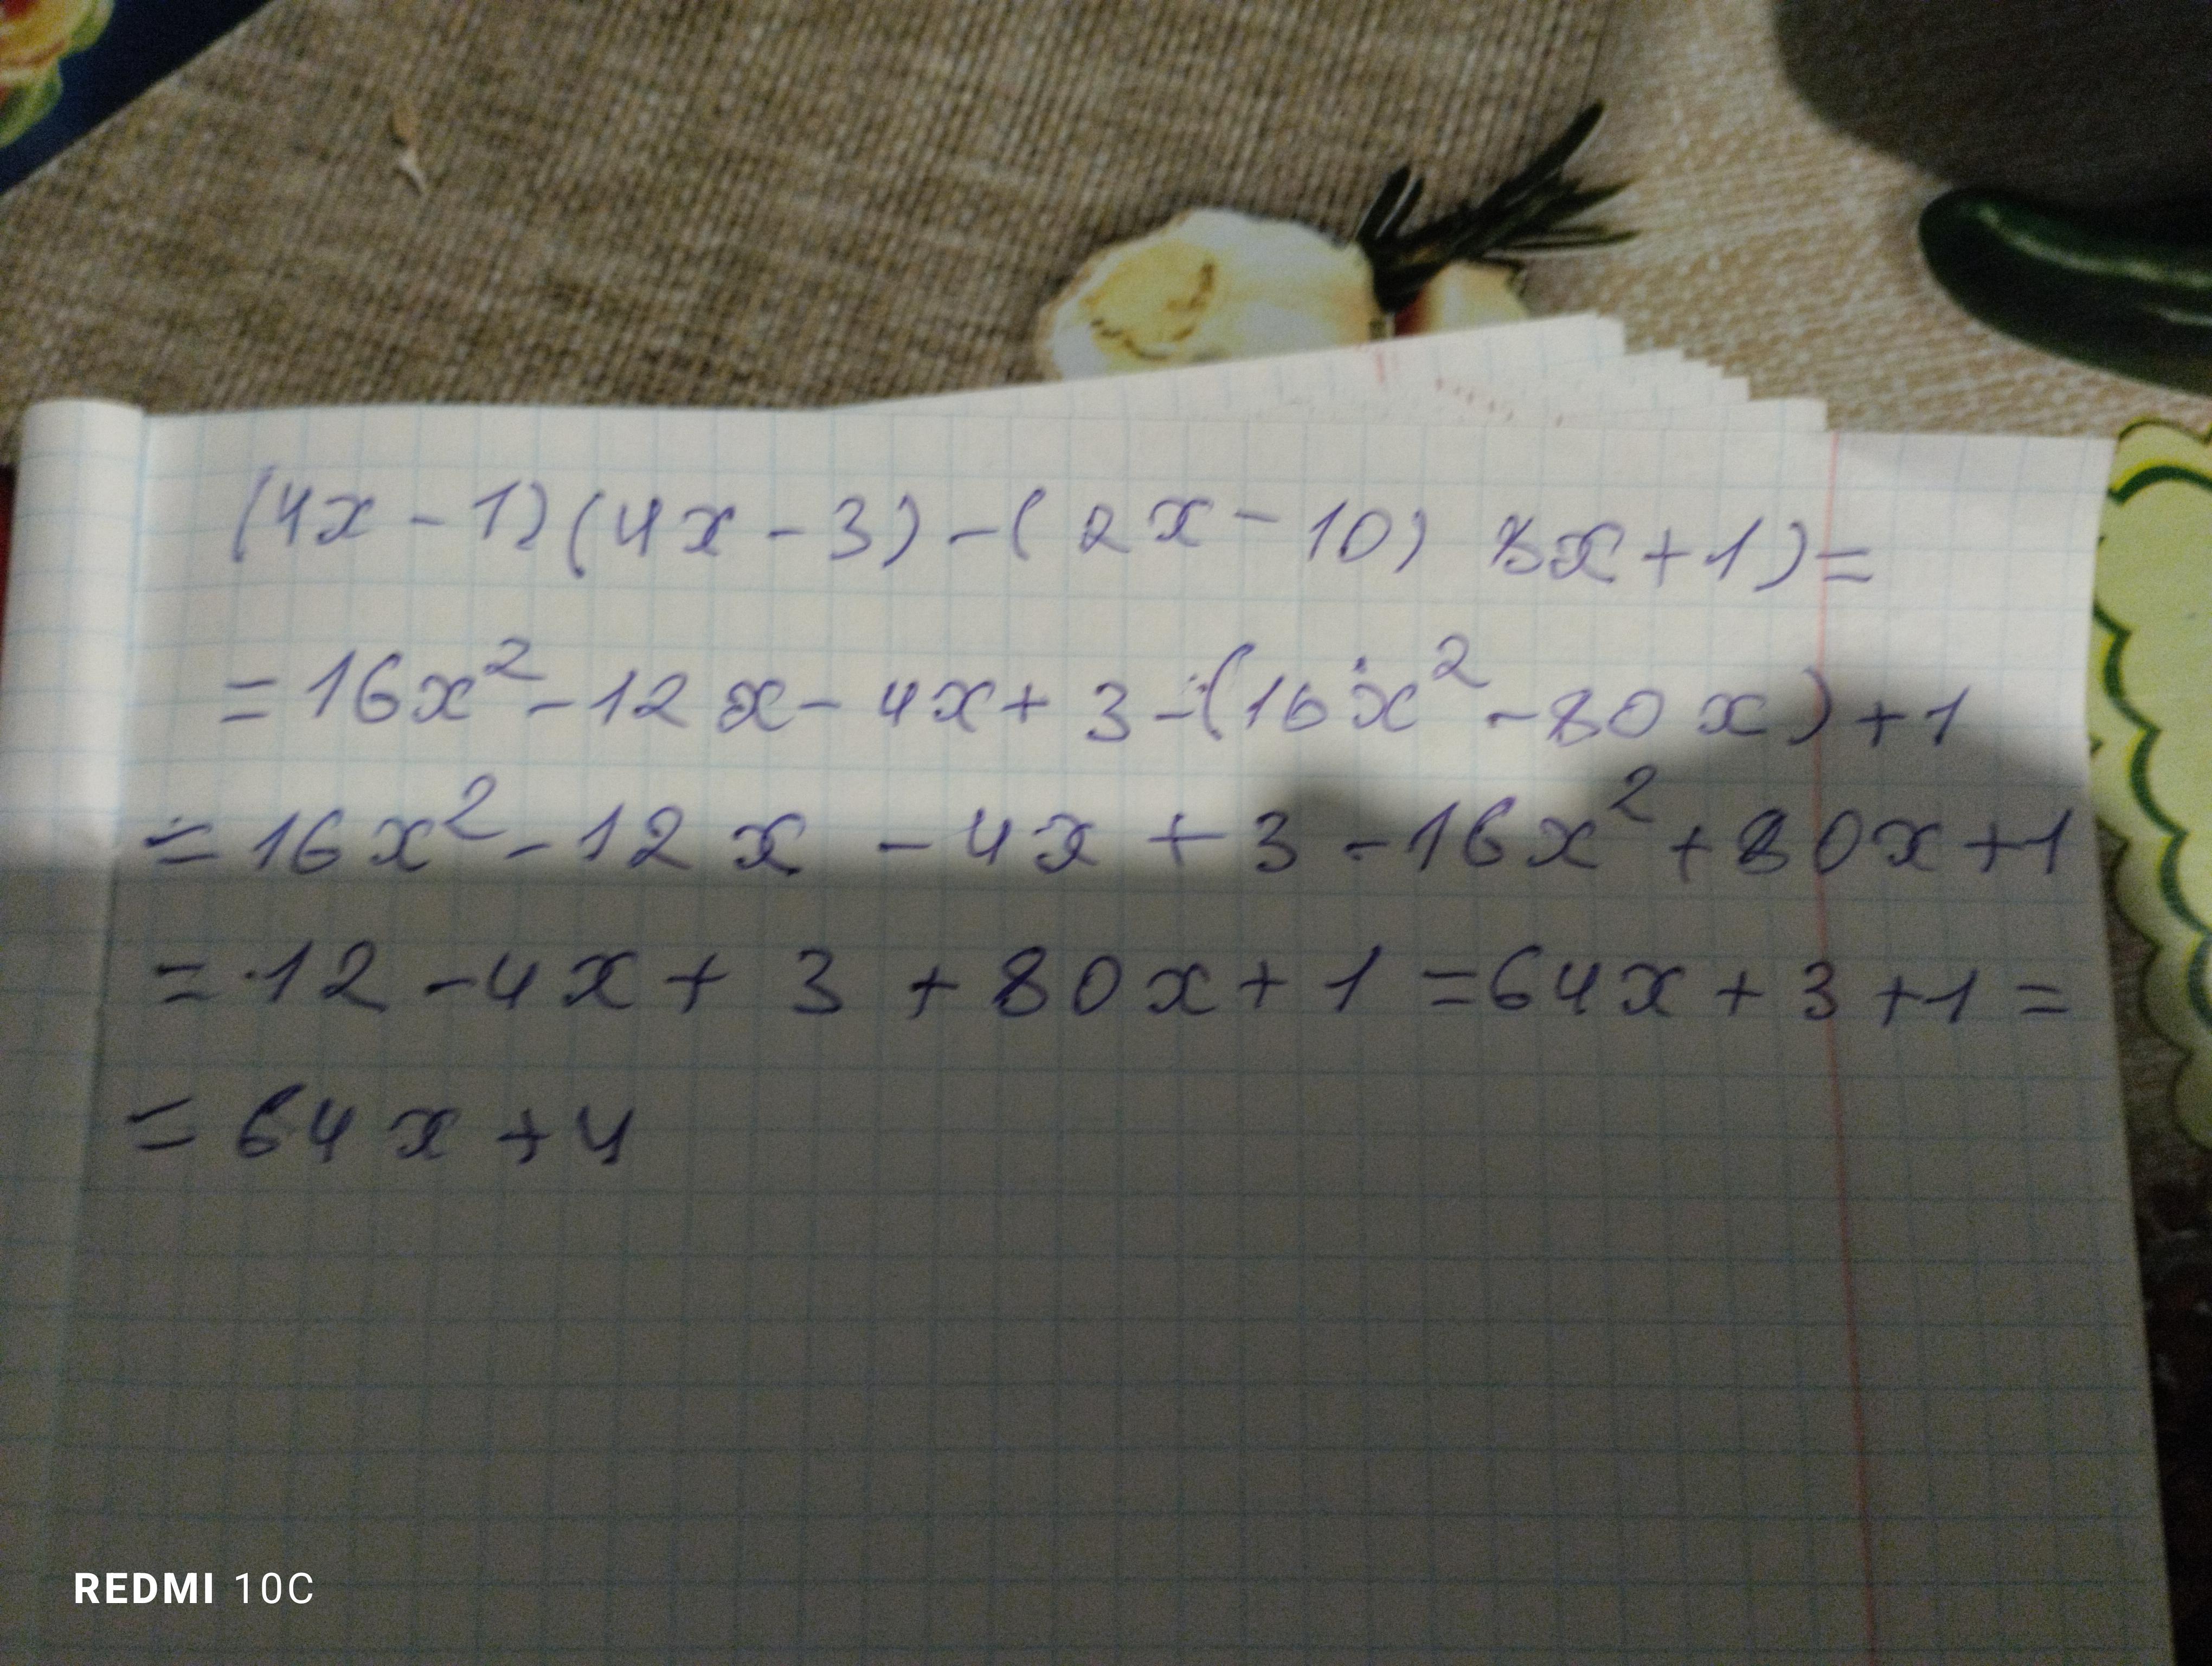 (4x - 1)(4x - 3) - (2x - 10) 8x + 1) =
= 16x² - 12x - 4x + 3 - (16x² - 80x) + 1
= 16x² - 12x - 4x + 3 - 16x² + 80x + 1
= -12 - 4x + 3 + 80x + 1 = 64x + 3 + 1 =
= 64x + 4
REDMI 10C